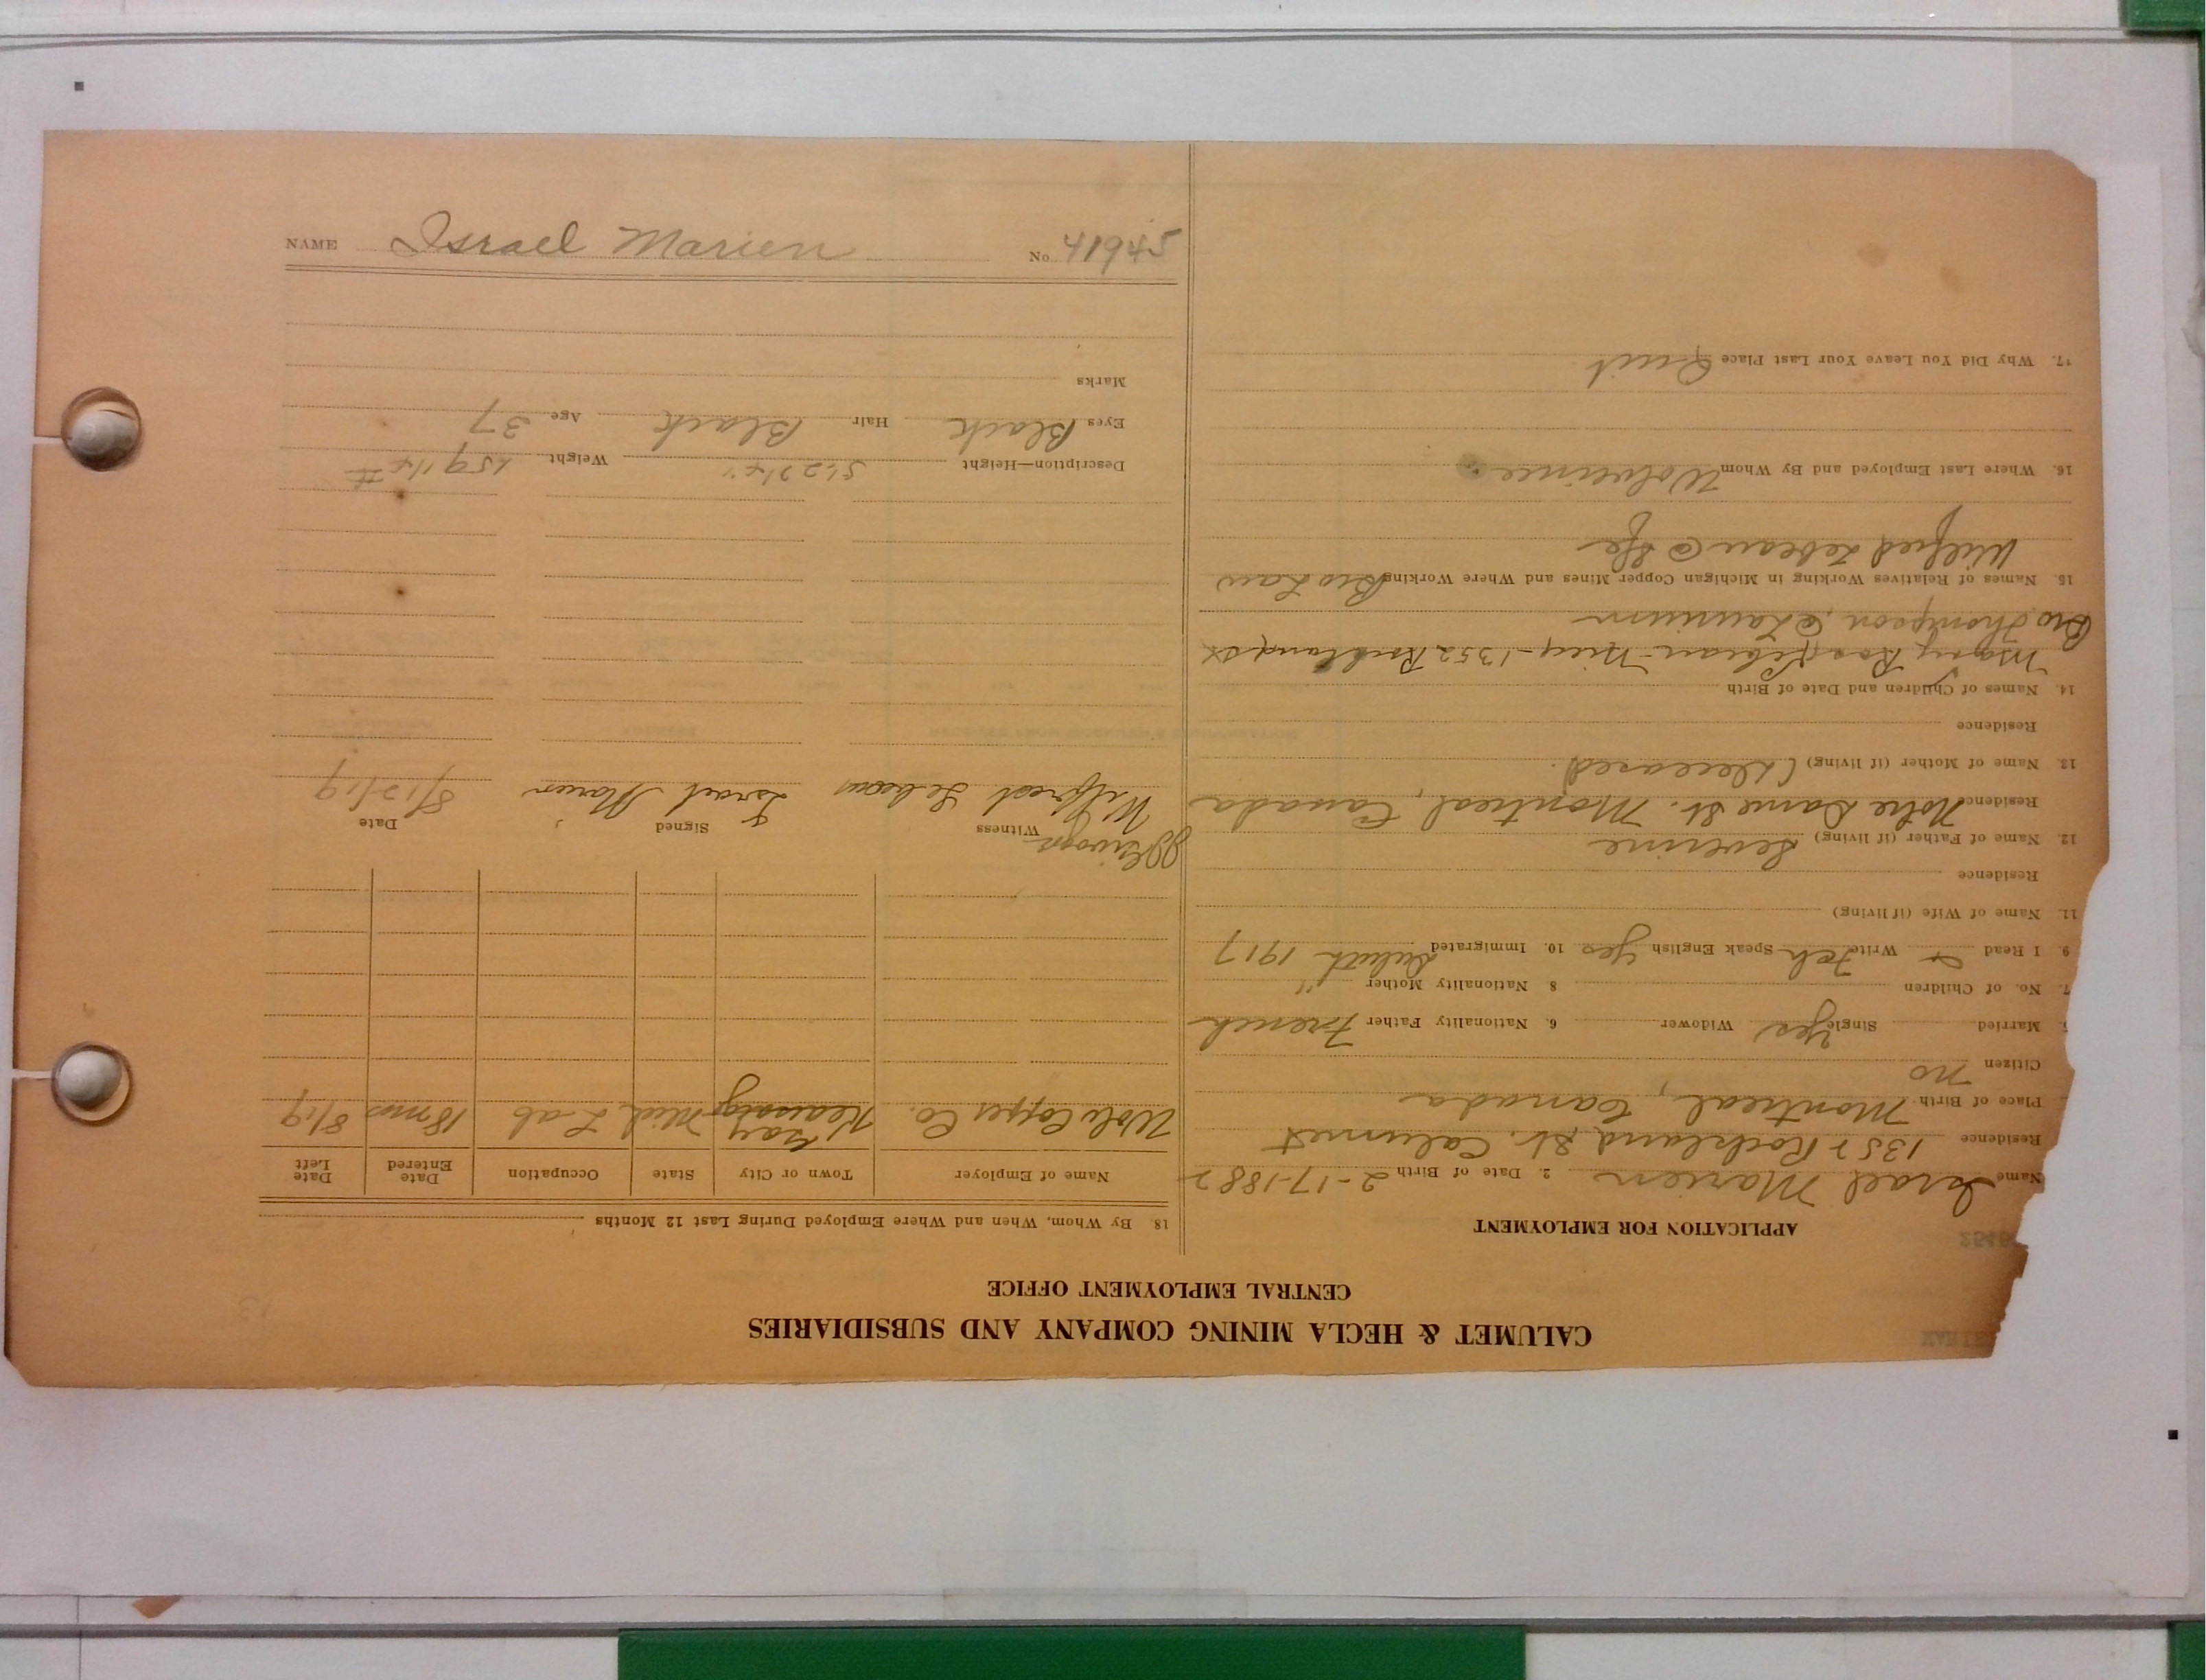 CALUMET & HECLA MINING COMPANY AND SUBSIDIARIES
CENTRAL EMPLOYMENT OFFICE
APPLICATION FOR EMPLOYMENT
Name Israel Marien 2. Date of Birth 2-17-1882
Residence 1352 Rockland St. Calumet
Place of Birth Montreal, Canada
Citizen no
Married Single Yes Widower 6. Nationality Father French
7. No. of Children 8 Nationality Mother "
9. I Read Write Fch Speak English Yes 10. Immigrated Duluth 1917
11. Name of Wife (if living)
Residence
12. Name of Father (if living) Severine
Residence Notre Dame St. Montreal, Canada
13. Name of Mother (if living) (Deceased)
Residence
14. Names of Children and Date of Birth
Mary Rose Lebeau - Niece - 1352 Rockland St
Bro Thompson, @ Laurium
15. Names of Relatives Working in Michigan Copper Mines and Where Working Bro Law
Wilfred Lebeau @
16. Where Last Employed and By Whom Wolverine
17. Why Did You Leave Your Last Place Quit
18. By Whom, When and Where Employed During Last 12 Months
Name of Employer Town or City State Occupation Date Entered Date Left
Wolv Copper Co. Gay Kearsarge Mich Lab 18 mos 8/19
Witness Signed Date
Wilfred Lebeau Israel Marien 8/12/19
Description—Height 5' 2 3/4" Weight 159 1/4 #
Eyes Black Hair Black Age 37
Marks
NAME Israel Marien No. 41945